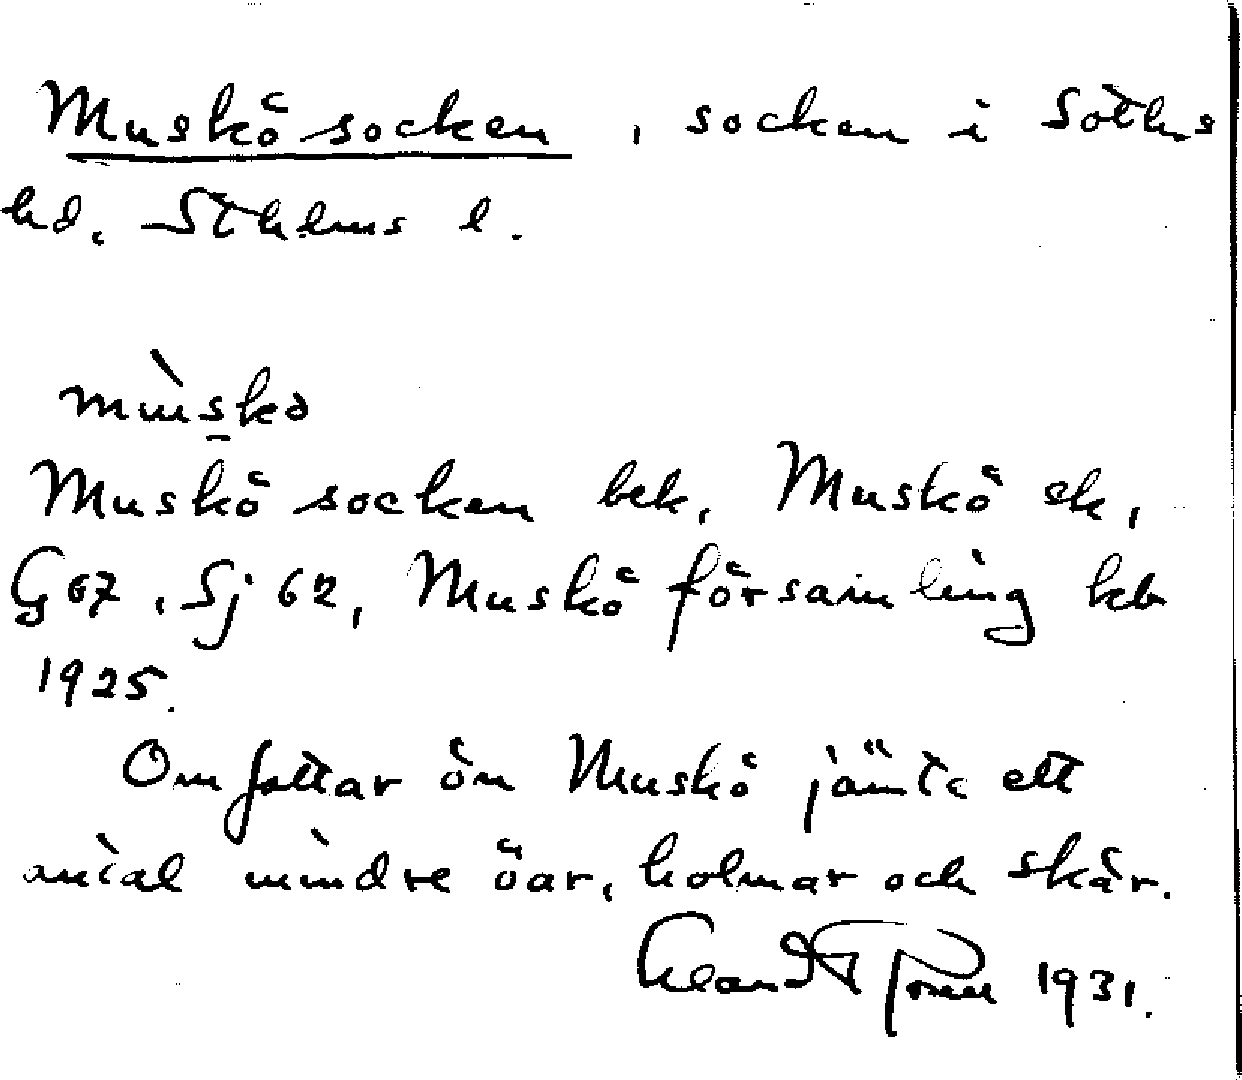 Muskö socken, socken i Soth̄s
hd, Sthlms l.
mùskö
Muskö socken bek, Muskö ek,
G 67, Sj 62, Muskö församling kb
1925.
Omfattar ön Muskö jämte ett
antal mindre öar, holmar och skär.
1931.